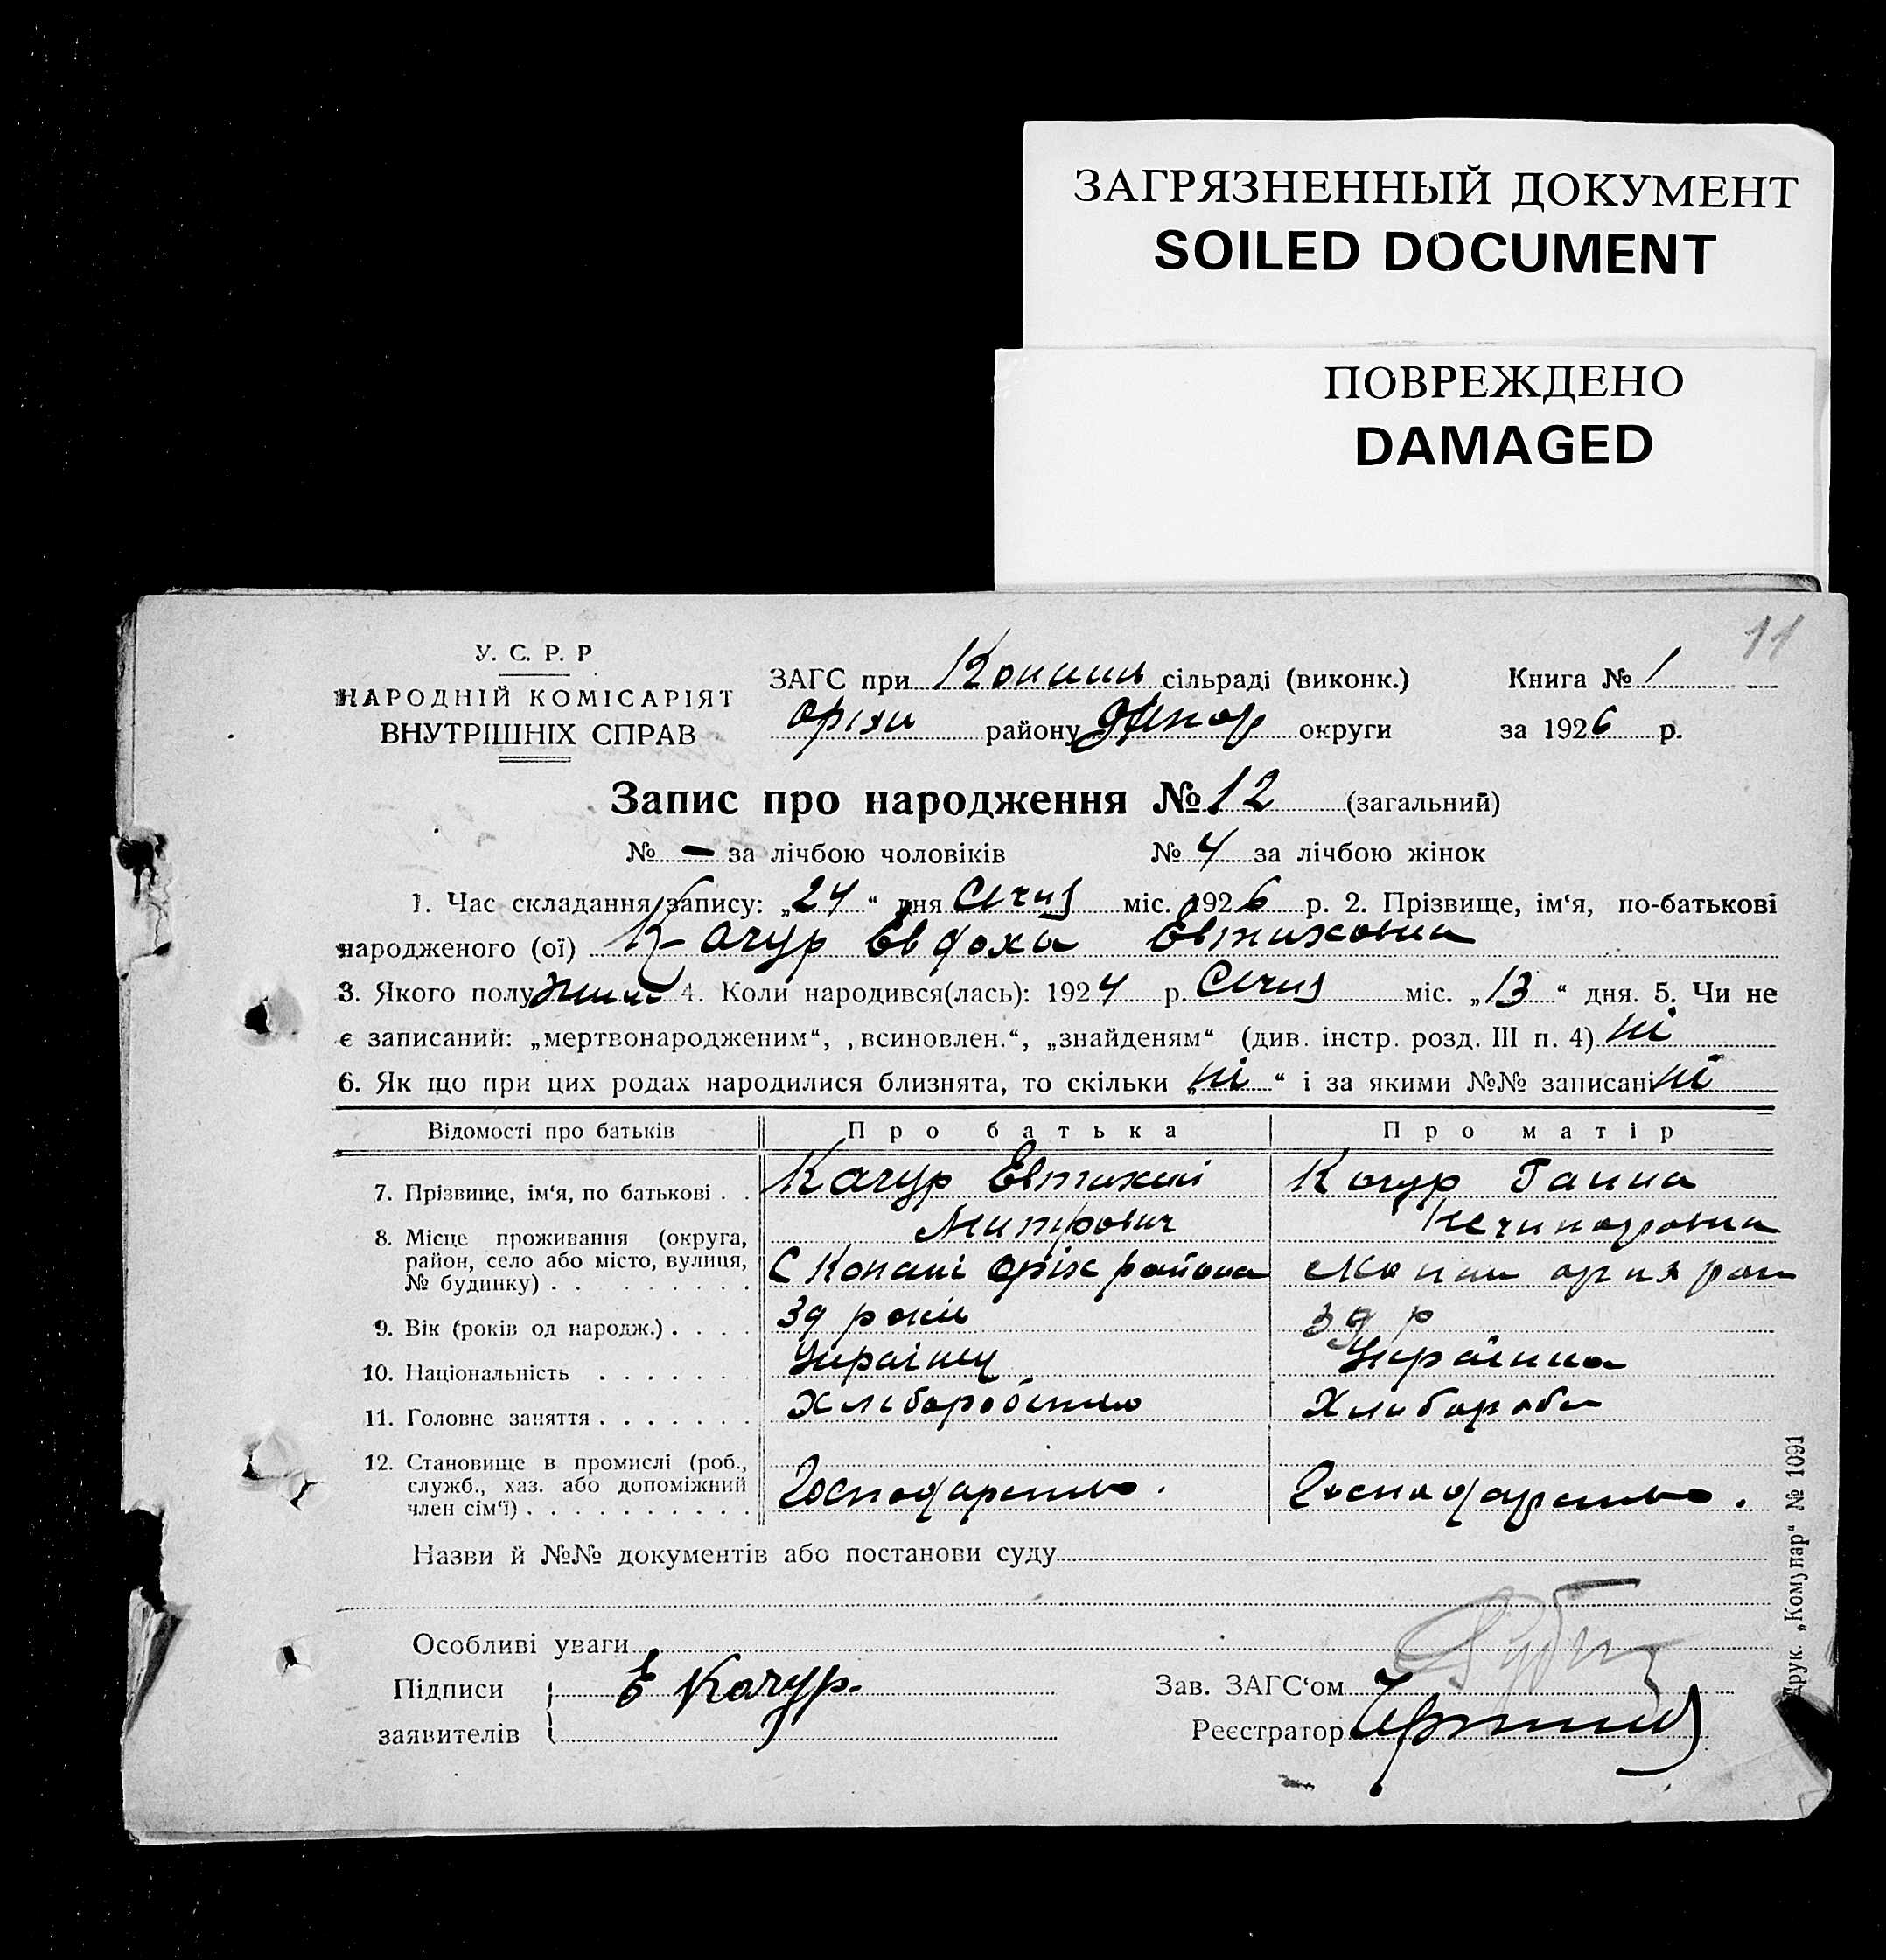 ЗАГРЯЗНЕННЫЙ ДОКУМЕНТ
SOILED DOCUMENT
ПОВРЕЖДЕНО
DAMAGED
11
У. С. Р. Р
НАРОДНІЙ КОМІСАРІЯТ
ВНУТРІШНІХ СПРАВ
ЗАГС при Копань сільраді (виконк.) Книга № 1
Оріхи району округи за 1926 р.
Запис про народження № 12 (загальний)
№ — за лічбою чоловіків № 4 за лічбою жінок
1. Час складання запису: „24“ дня Січня міс. 1926 р. 2. Прізвище, ім‘я, по-батькові
народженого (ої) Качур Евдоха Евтиховна
3. Якого полу 4. Коли народився(лась): 1924 р. Січня міс. „13“ дня. 5. Чи не
є записаний: „мертвонародженим“, „всиновлен.“, „знайденям“ (див. інстр. розд. III п. 4) ні
6. Як що при цих родах народилися близнята, то скільки „ні“ і за якими №№ записані ні
Відомості про батьків Про батька Про матір
7. Прізвище, ім‘я, по батькові . . Качур Евтихий Качур Ганна
Митрович Нечипоровна
8. Місце проживання (округа,
район, село або місто, вулиця,
№ будинку) . . . . . . . . . С Копані Оріх района
9. Вік (років од народж.) . . . . 39 років 39 р
10. Національність . . . . . . . Українец Українка
11. Головне заняття . . . . . . . Хліборобство Хлибороба
12. Становище в промислі (роб.,
служб., хаз. або допоміжний
член сім‘ї) . . . . . . . . . . Господарство. Господарство.
Назви й №№ документів або постанови суду
Особливі уваги
Підписи Е Качур. Зав. ЗАГС‘ом
заявителів Реєстратор
Друк. „Комунар“ № 1091